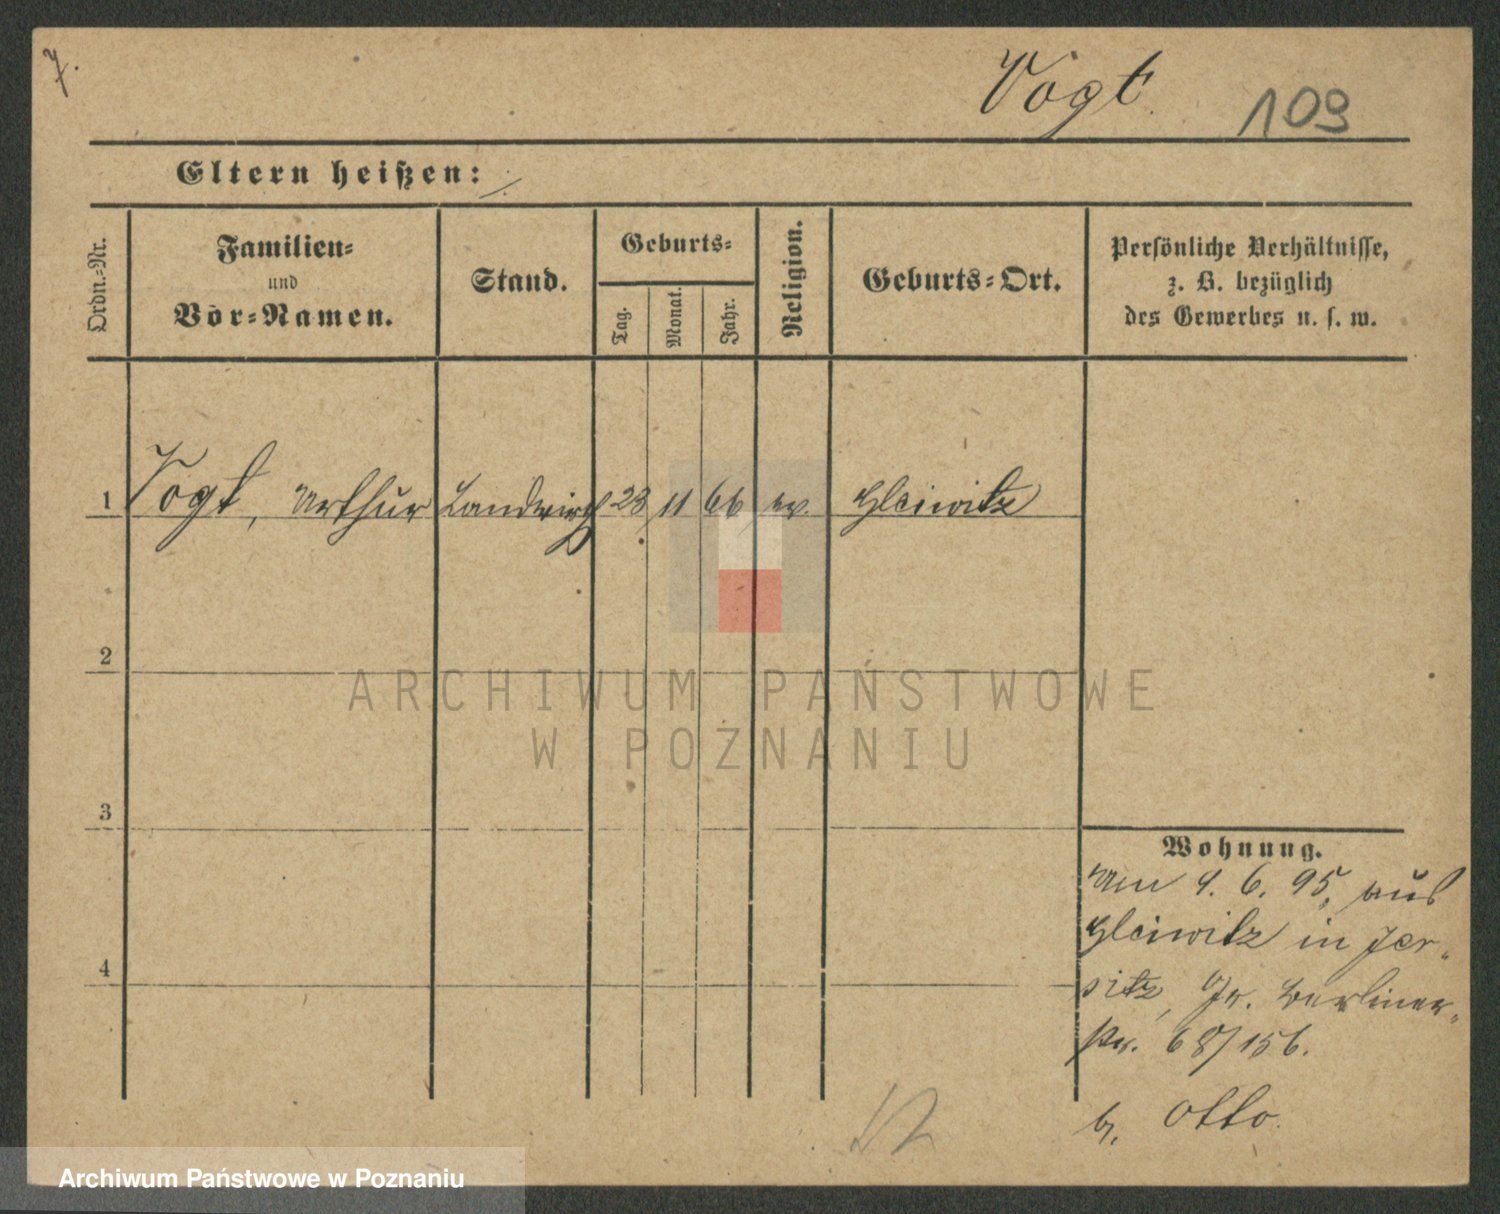 7.
Vogt
109
Eltern heißen:
Ordn.-Nr.
Familien-
und
Vor-Namen.
Stand.
Geburts-
Tag.
Monat.
Jahr.
Religion.
Geburts-Ort.
Persönliche Verhältnisse,
z. B. bezüglich
des Gewerbes u. s. w.
1 Vogt, Arthur Landwirth 23 11 66 ev. Gleiwitz
2
ARCHIWUM PAŃSTWOWE
W POZNANIU
3
Wohnung.
Am 4. 6. 95, aus
Gleiwitz in Jer-
4
sitz, Gr. Berliner-
str. 68/156.
b. Otto.
Archiwum Państwowe w Poznaniu